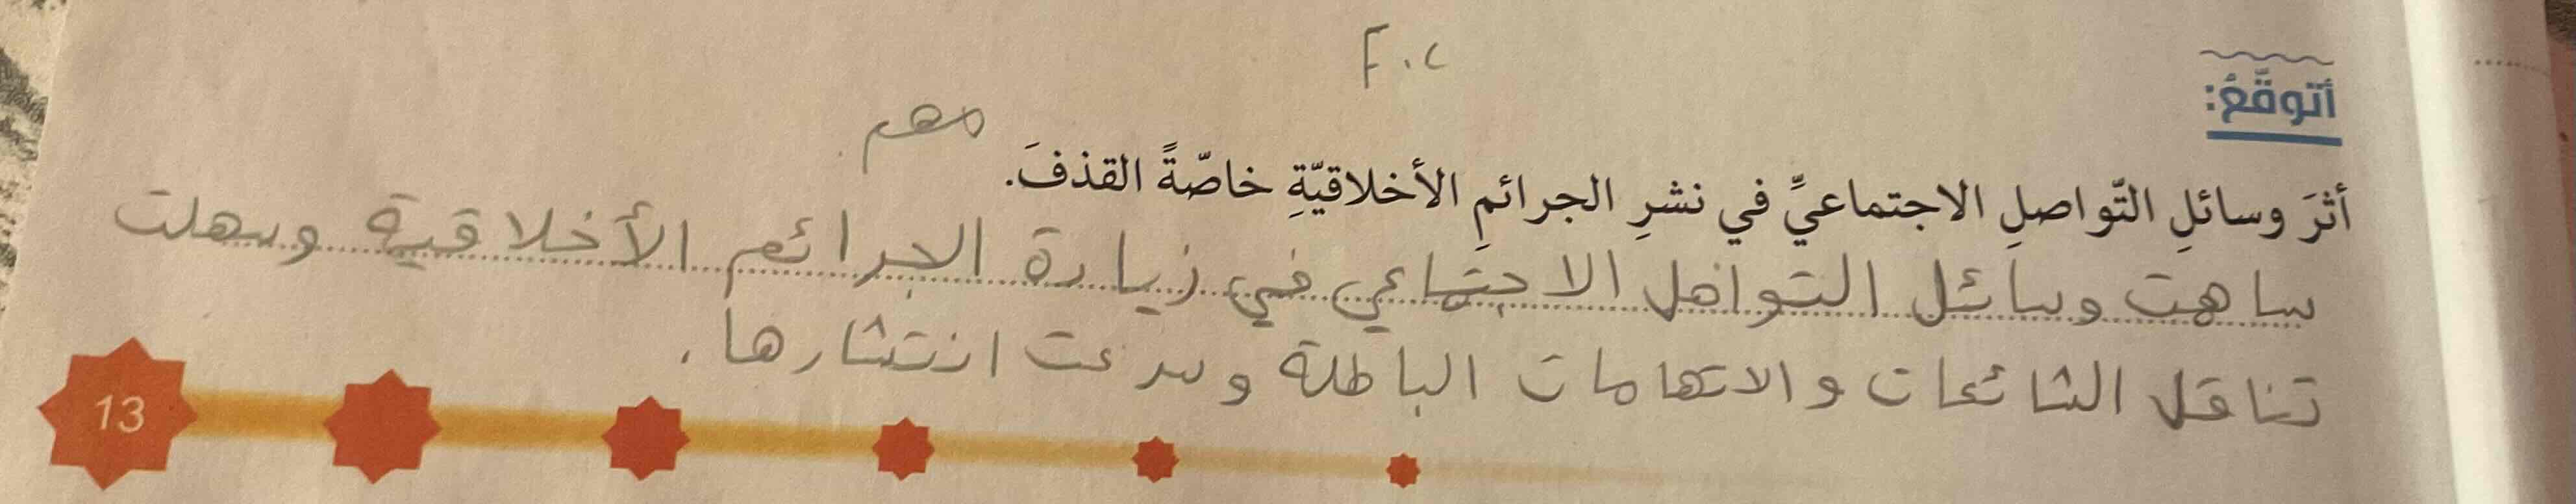 F.C
أتوقَّعُ:
مهم
أثرَ وسائلِ التّواصلِ الاجتماعيِّ في نشرِ الجرائمِ الأخلاقيّةِ خاصّةً القذفَ.
ساهمت وسائل التواصل الاجتماعي في زيادة الجرائم الأخلاقية وسهلت
تناقل الشائعات والاتهامات الباطلة وسرعت انتشارها.
13